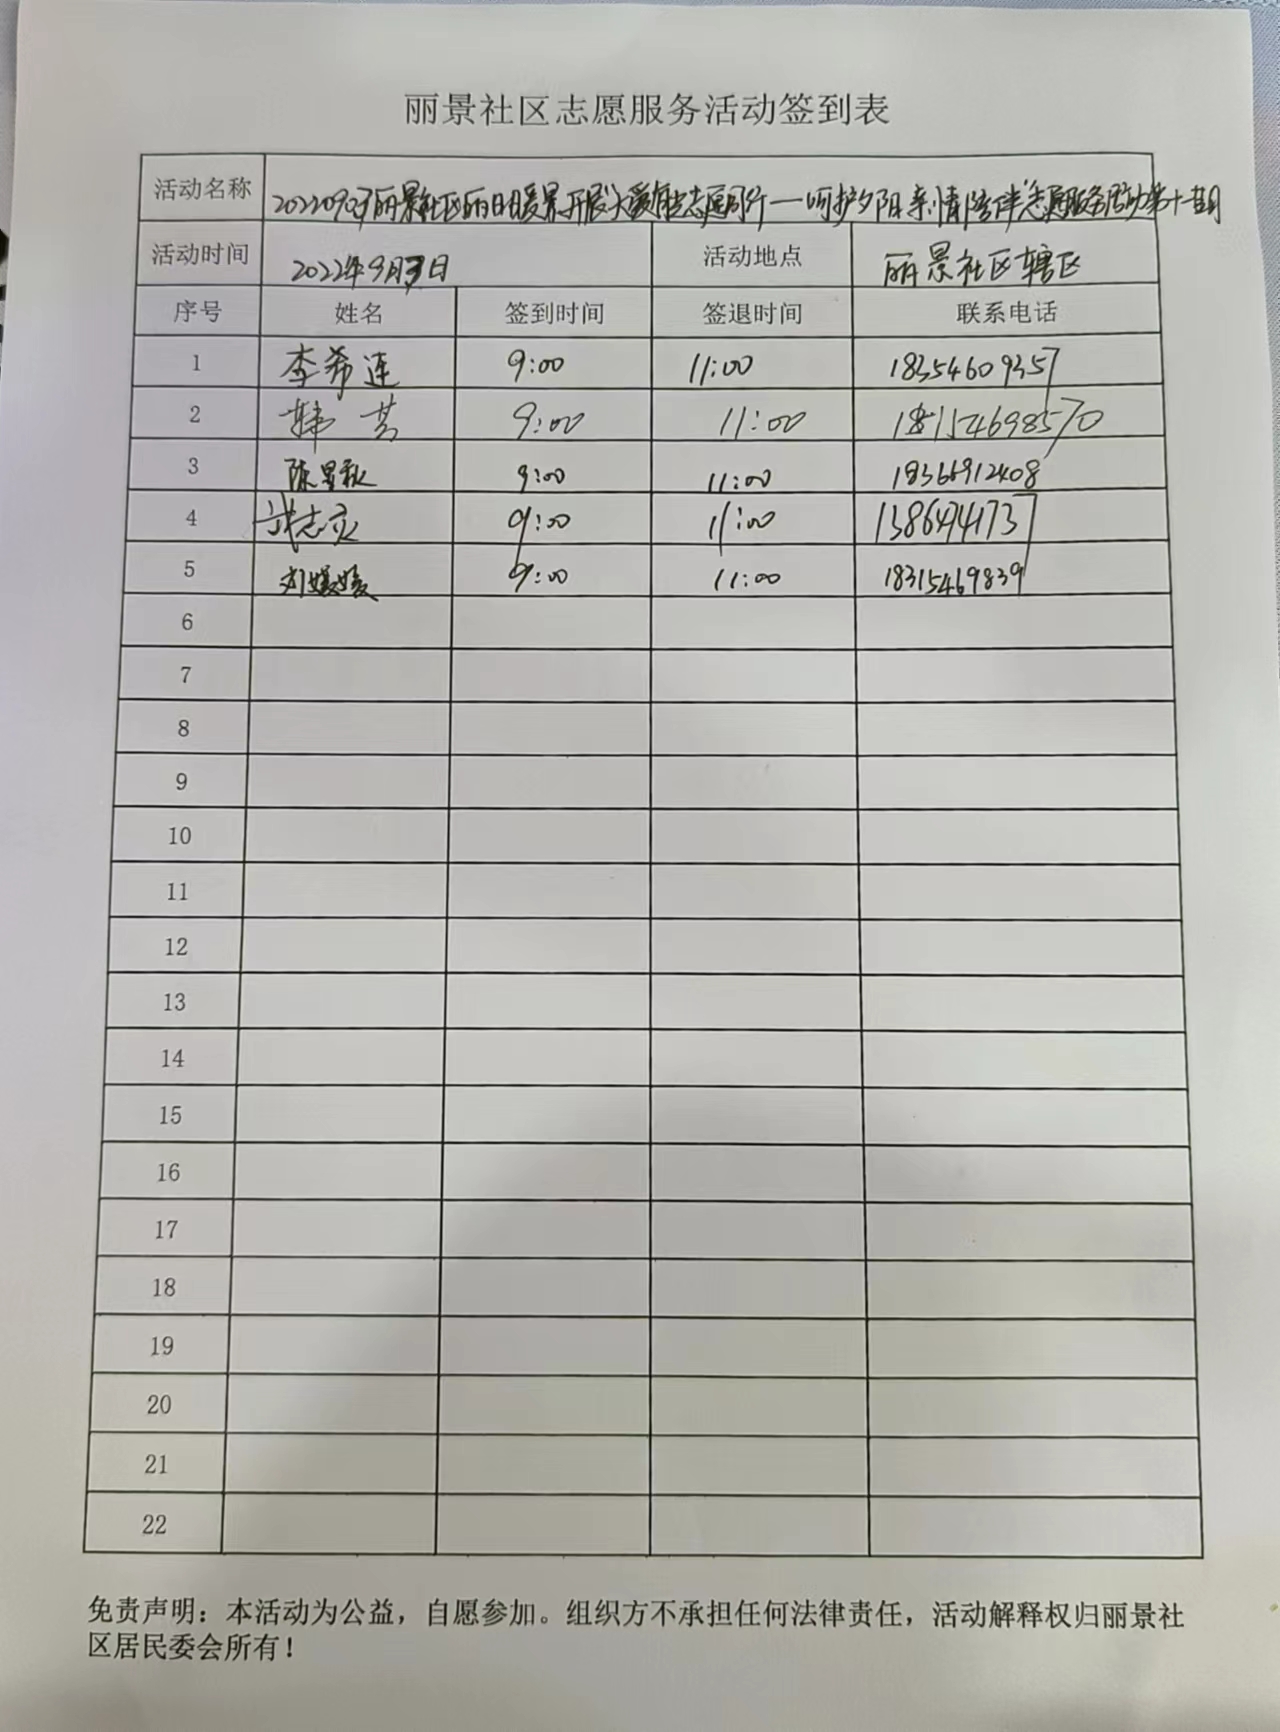 丽景社区志愿服务活动签到表
活动名称 20220903丽景社区丽日暖景开展"大爱 志愿同行——呵护夕阳 亲情陪伴"志愿服务活动第十
活动时间 2022年9月3日 活动地点 丽景社区辖区
序号 姓名 签到时间 签退时间 联系电话
1 李希连 9:00 11:00 18354609357
2 韩芸 9:00 11:00
3 陈星秋 9:00 11:00 18366912408
4 9:00 11:00
5 刘媛媛 9:00 11:00 18315469839
6
7
8
9
10
11
12
13
14
15
16
17
18
19
20
21
22
免责声明：本活动为公益，自愿参加。组织方不承担任何法律责任，活动解释权归丽景社
区居民委会所有！